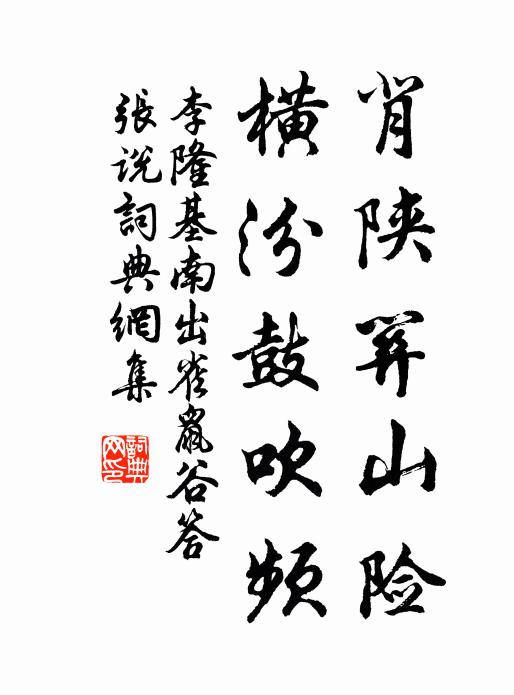 背陕关山险
横汾鼓吹频
李隆基南出雀鼠谷答
張说詞典網集
詞典网印